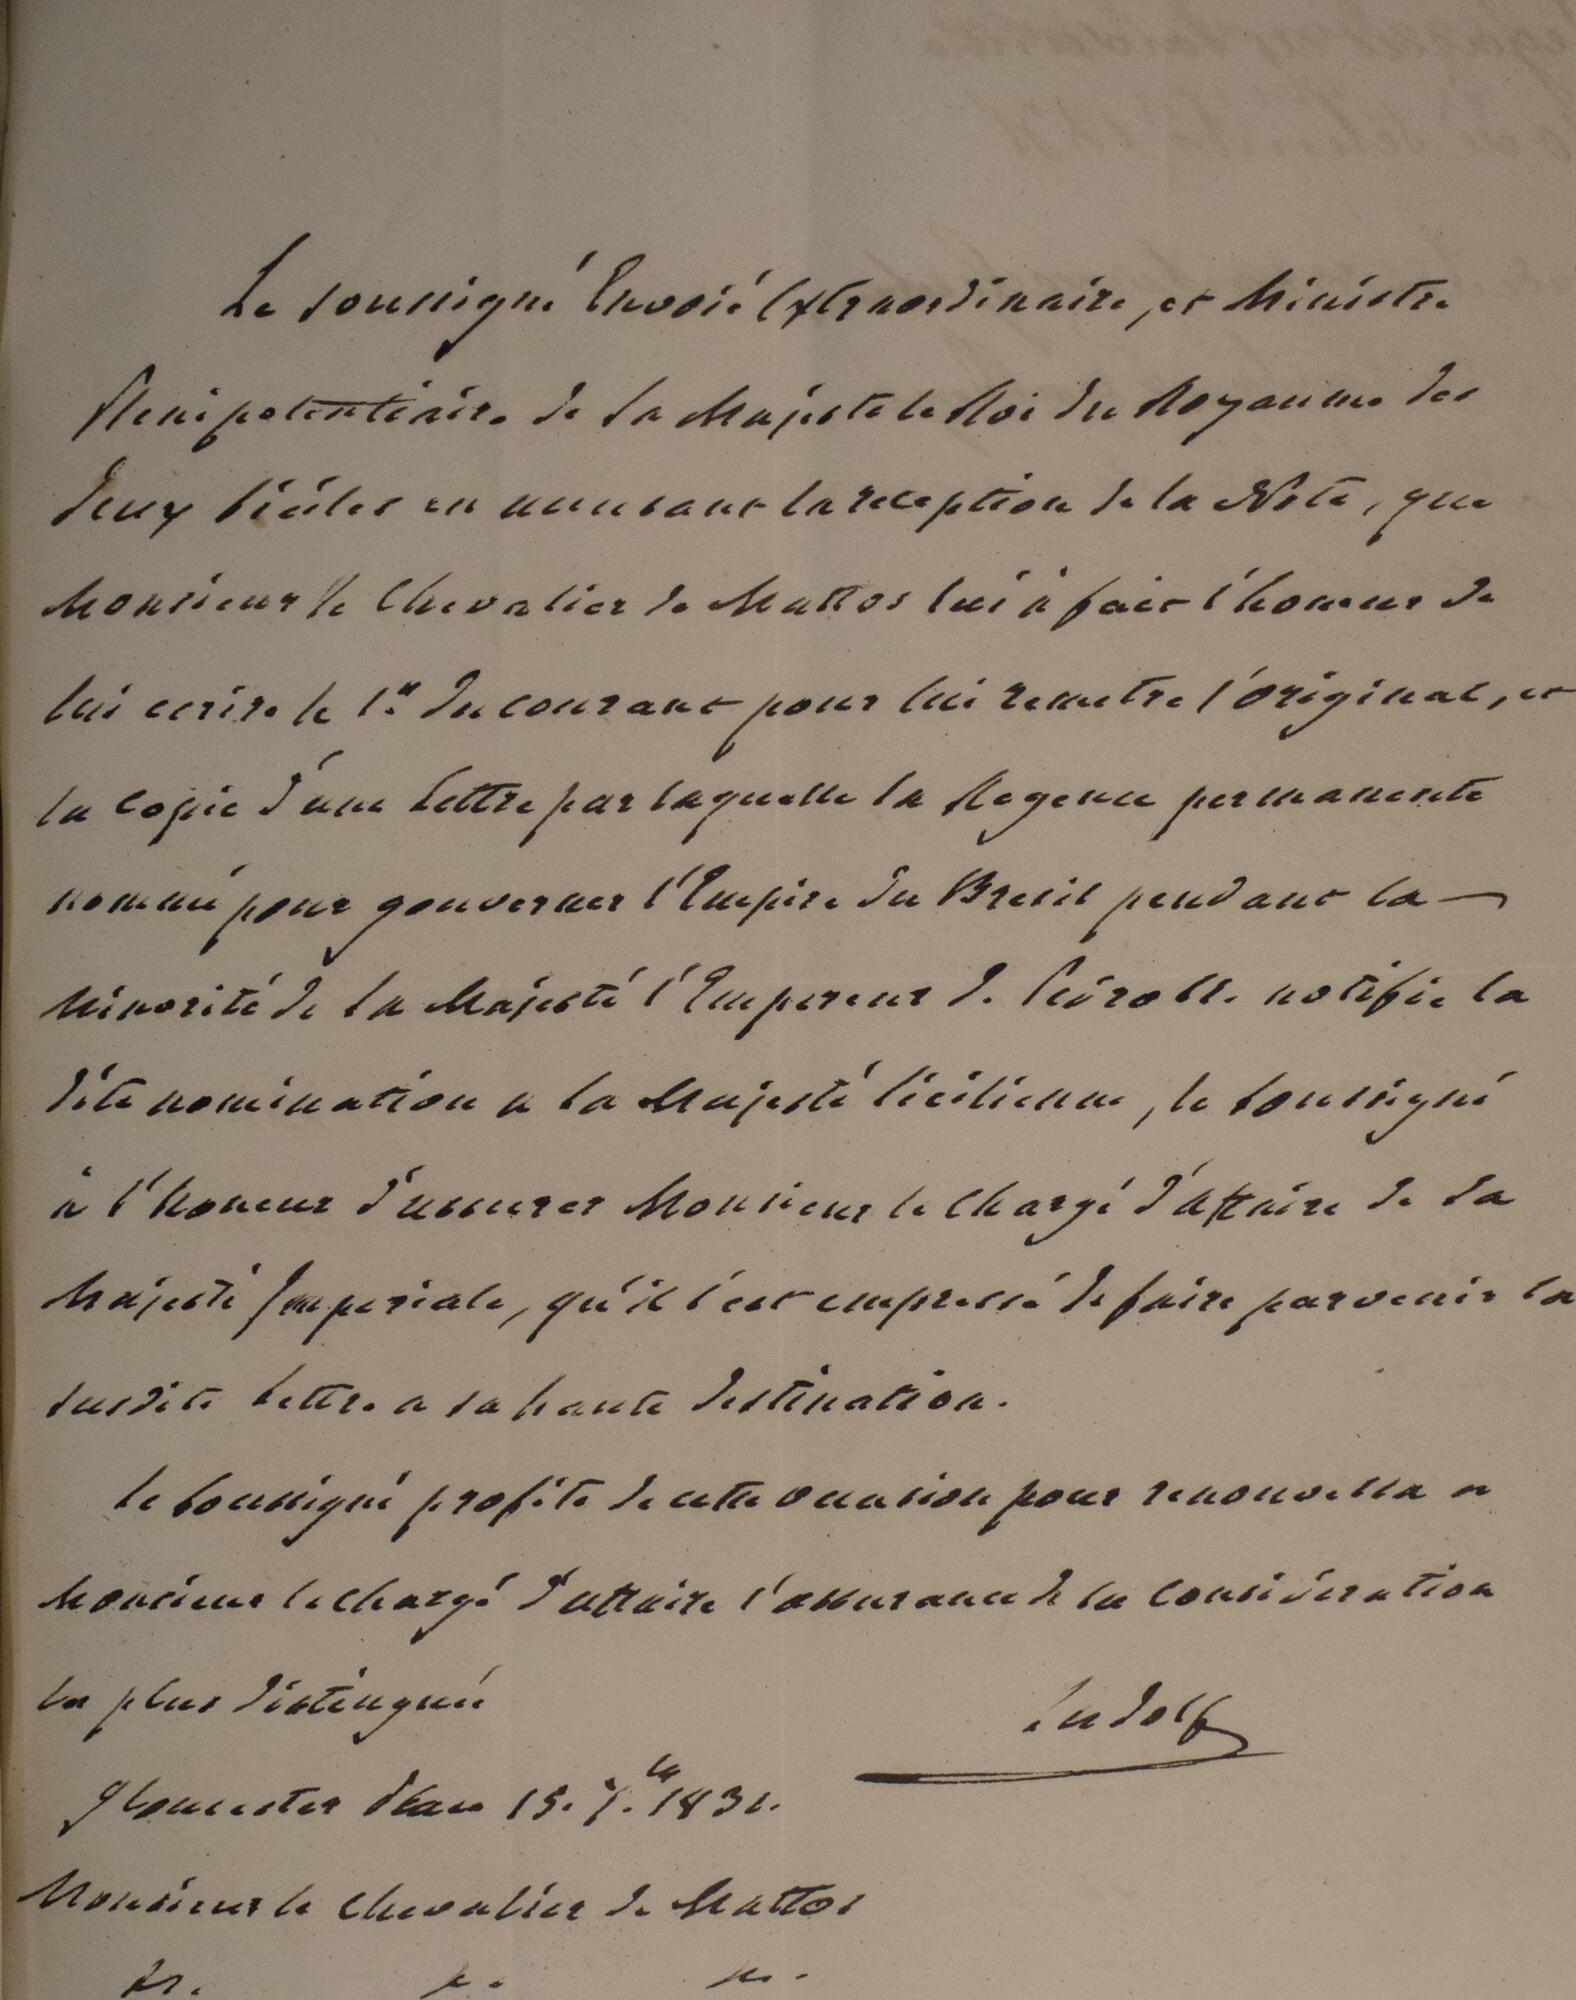 Le soussigné Envoié Extraordinaire, et Ministre
Plenipotentiaire de Sa Majesté le Roi du Royaume des
Deux Siciles en accusant la reception de la Note, que
Monsieur le Chevalier de Mattos lui à fait l'honeur de
lui ecrire le 1.er du courant pour lui remetre l'original, et
la copie d'une Lettre par laquelle la Regence permanente
nommé pour gouverner l'Empire du Bresil pendant la
Minorité de Sa Majesté l'Empereur D. Pedro II. notifie la
dite nomination a Sa Majesté Sicilienne, le Soussigné
à l'honeur d'assurer Monsieur le Chargé d'affaire de Sa
Majesté Imperiale, qu'il s'est empressé de faire parvenir la
susdite Lettre a sa haute destination.
Le Soussigné profite de cette occasion pour renouveller a
Monsieur le Chargé d'affaire l'assurance de la consideration
la plus distinguée
Ludolf
Gloucester Place 15. 7.bre 1831.
Monsieur le Chevalier de Mattos